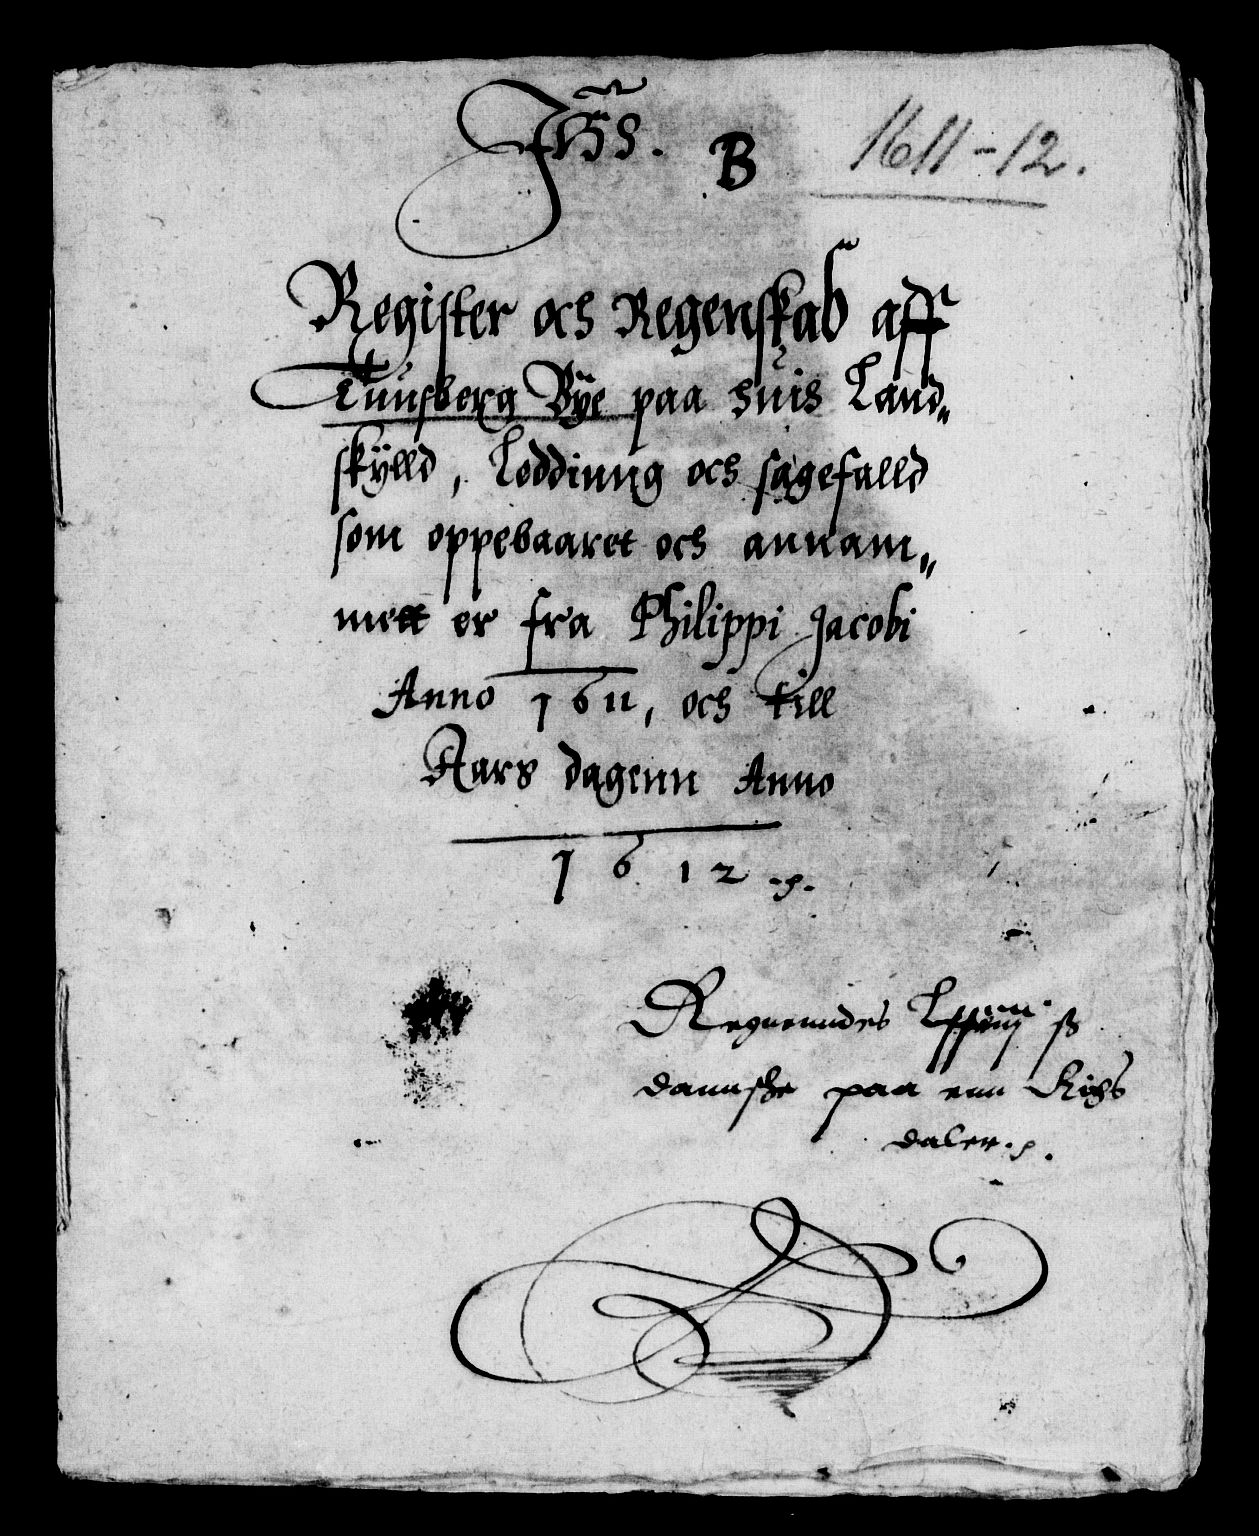 Jhs.
B
1611-12.
Register och Regenskab aff
Tunsberg Bÿe paa huis Land„
skÿlld, Loddinng och sagefalld
som oppebaaret och annam„
mett er fra Philippi Jacobi
Anno 1611, och till
Aars dagenn Anno
1612
Regnenndes ß
dannske paa enn Rigs
daler.